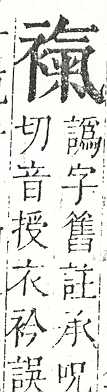 譌字舊註承呪
切音授衣衿誤